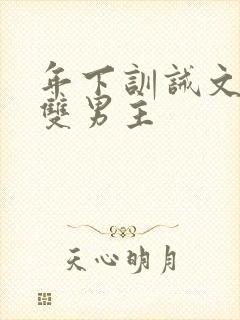 年下訓誡文
雙男主
天心明月